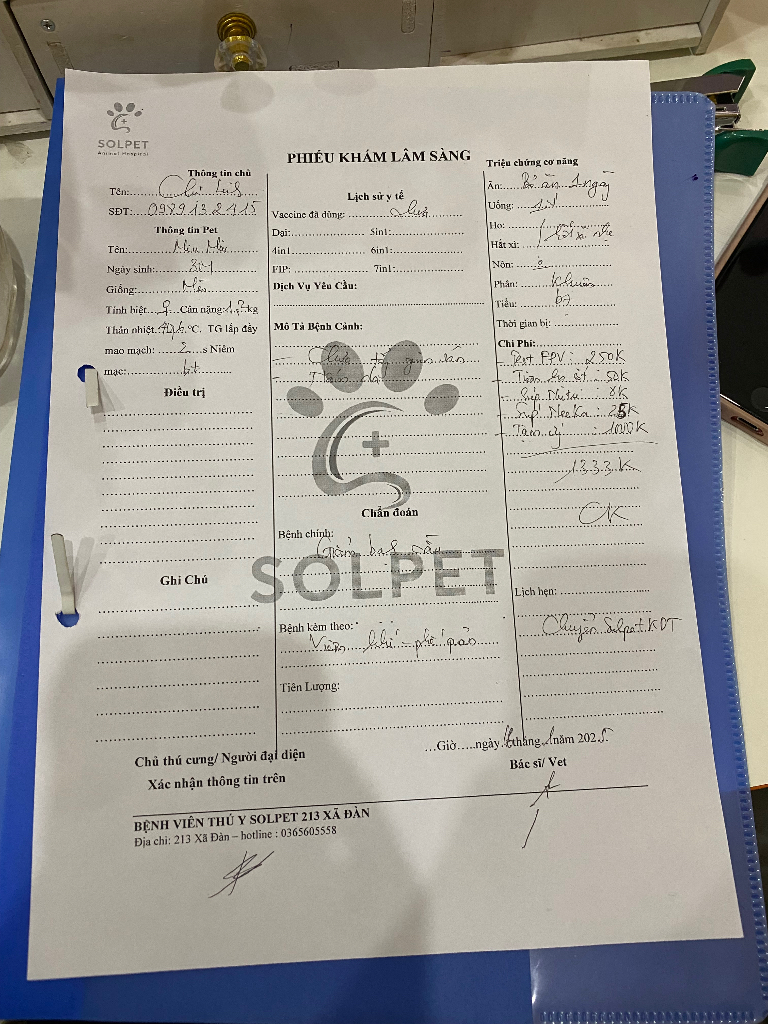 SOLPET
Animal Hospital
PHIẾU KHÁM LÂM SÀNG
Thông tin chủ
Tên:
SĐT: 0989132415
Thông tin Pet
Tên: Miu Miu
Ngày sinh:
Giống: Mèo
Tính biệt: ♀ Cân nặng: 1,2 kg
Thân nhiệt: 40,6 °C. TG lấp đầy
mao mạch: 2 s Niêm
mạc: bt
Điều trị
Ghi Chú
Lịch sử y tế
Vaccine đã dùng: chưa
Dại: 5in1:
4in1 6in1:
FIP: 7in1:
Dịch Vụ Yêu Cầu:
Mô Tả Bệnh Cảnh:
- Chưa tẩy giun sán
-
Chẩn đoán
Bệnh chính:
Giảm bạch cầu
SOLPET
Bệnh kèm theo:
Viêm khí - phế quản
Tiên Lượng:
Triệu chứng cơ năng
Ăn: Bỏ ăn 1 ngày
Uống:
Ho:
Hắt xì:
Nôn:
Phân: khuôn
Tiểu: bt
Thời gian bị:
Chi Phí:
- Test FPV: 250K
- : 50K
- : 8K
- : 25K
- Tạm ứ : 1000K
1333K
OK
Lịch hẹn:
Chuyển Solpet KĐT
…Giờ…..ngày tháng 1 năm 2025
Bác sĩ/ Vet
Chủ thú cưng/ Người đại diện
Xác nhận thông tin trên
BỆNH VIỆN THÚ Y SOLPET 213 XÃ ĐÀN
Địa chỉ: 213 Xã Đàn – hotline : 0365605558